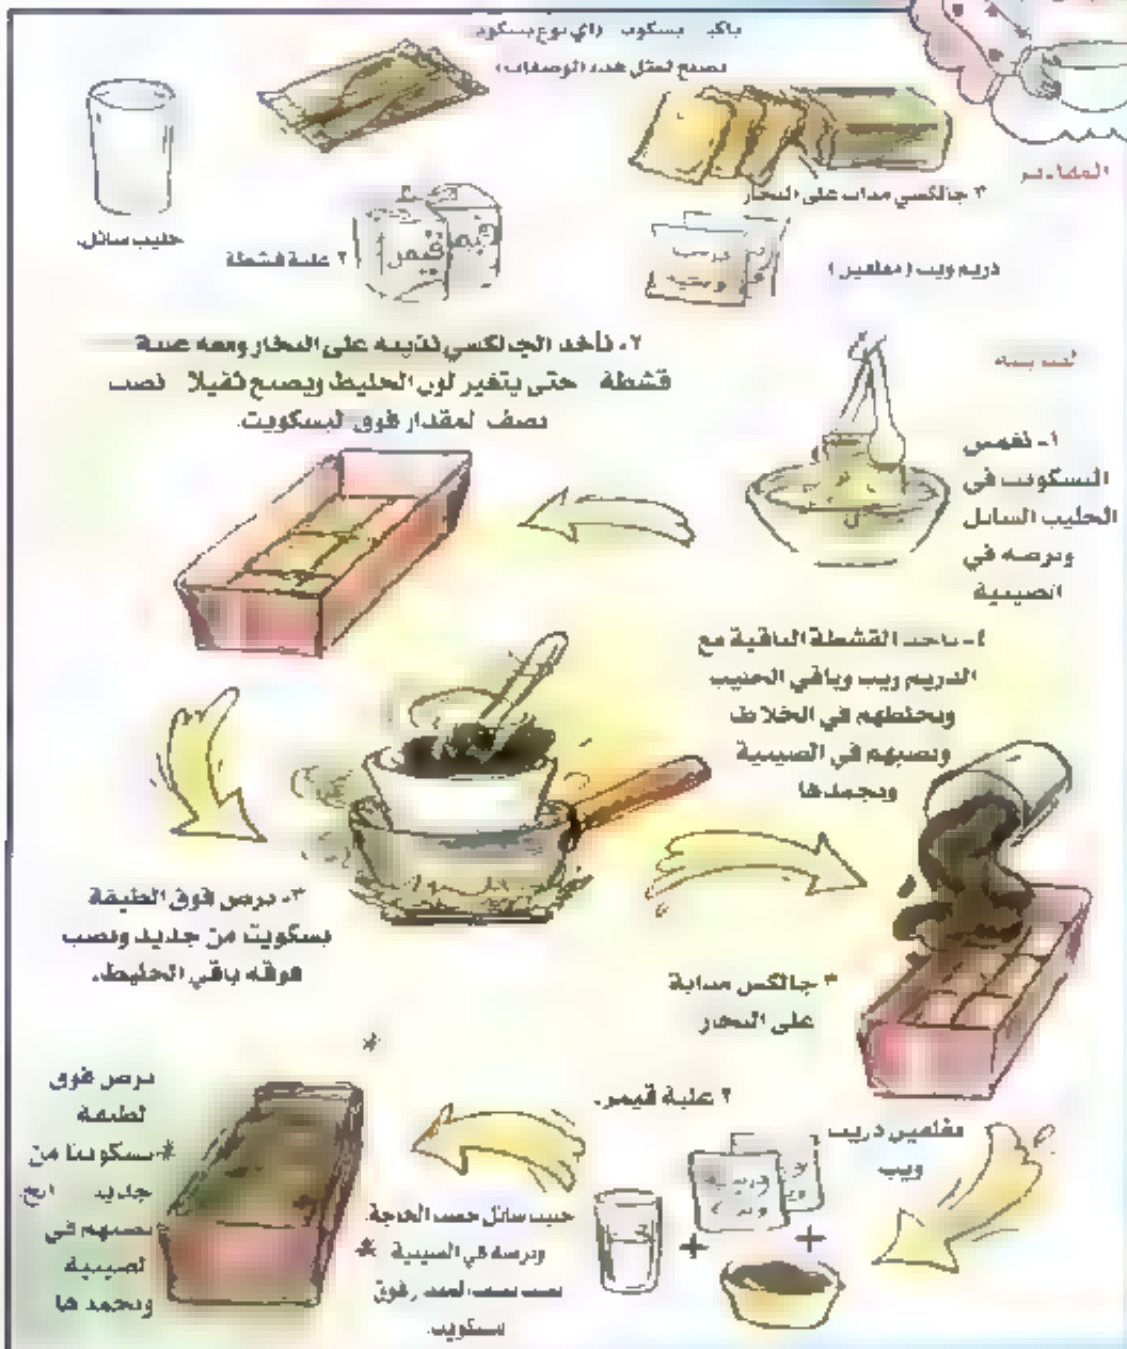 باكيت بسكويت (أي نوع بسكويت
يصنع لمثل هذه الوصفات)
المقادير
٣ جالكسي مذاب على البخار
حليب سائل.
٢ علبة قشطة
قيمر
قيمر
دريم ويب (مغلفين)
دريم
ويب
٢- نأخذ الجالكسي نذيبه على البخار ومعه علبة
قشطة حتى يتغير لون الخليط ويصبح ثقيلا نصب
نصف لمقدار فوق لبسكويت.
١- نغمس
البسكويت في
الحليب السائل
ونرصه في
الصينية
٤- نأخذ القشطة الباقية مع
الدريم ويب وباقي الحليب
ونخلطهم في الخلاط
ونصبهم في الصينية
ونجمدها
٣- نرص فوق الطبقة
بسكويت من جديد ونصب
فوقه باقي الخليط.
٣ جالكس مذابة
على البخار
٢ علبة قيمر.
مغلفين دريب
ويب
نرص فوق
لطبقة
بسكويتا من
جديد
نصبهم في
لصينية
ونجمد ها
حليب سائل حسب الحاجة.
ونرصه في الصينية
نصب نصف المقدار فوق
بسكويت.